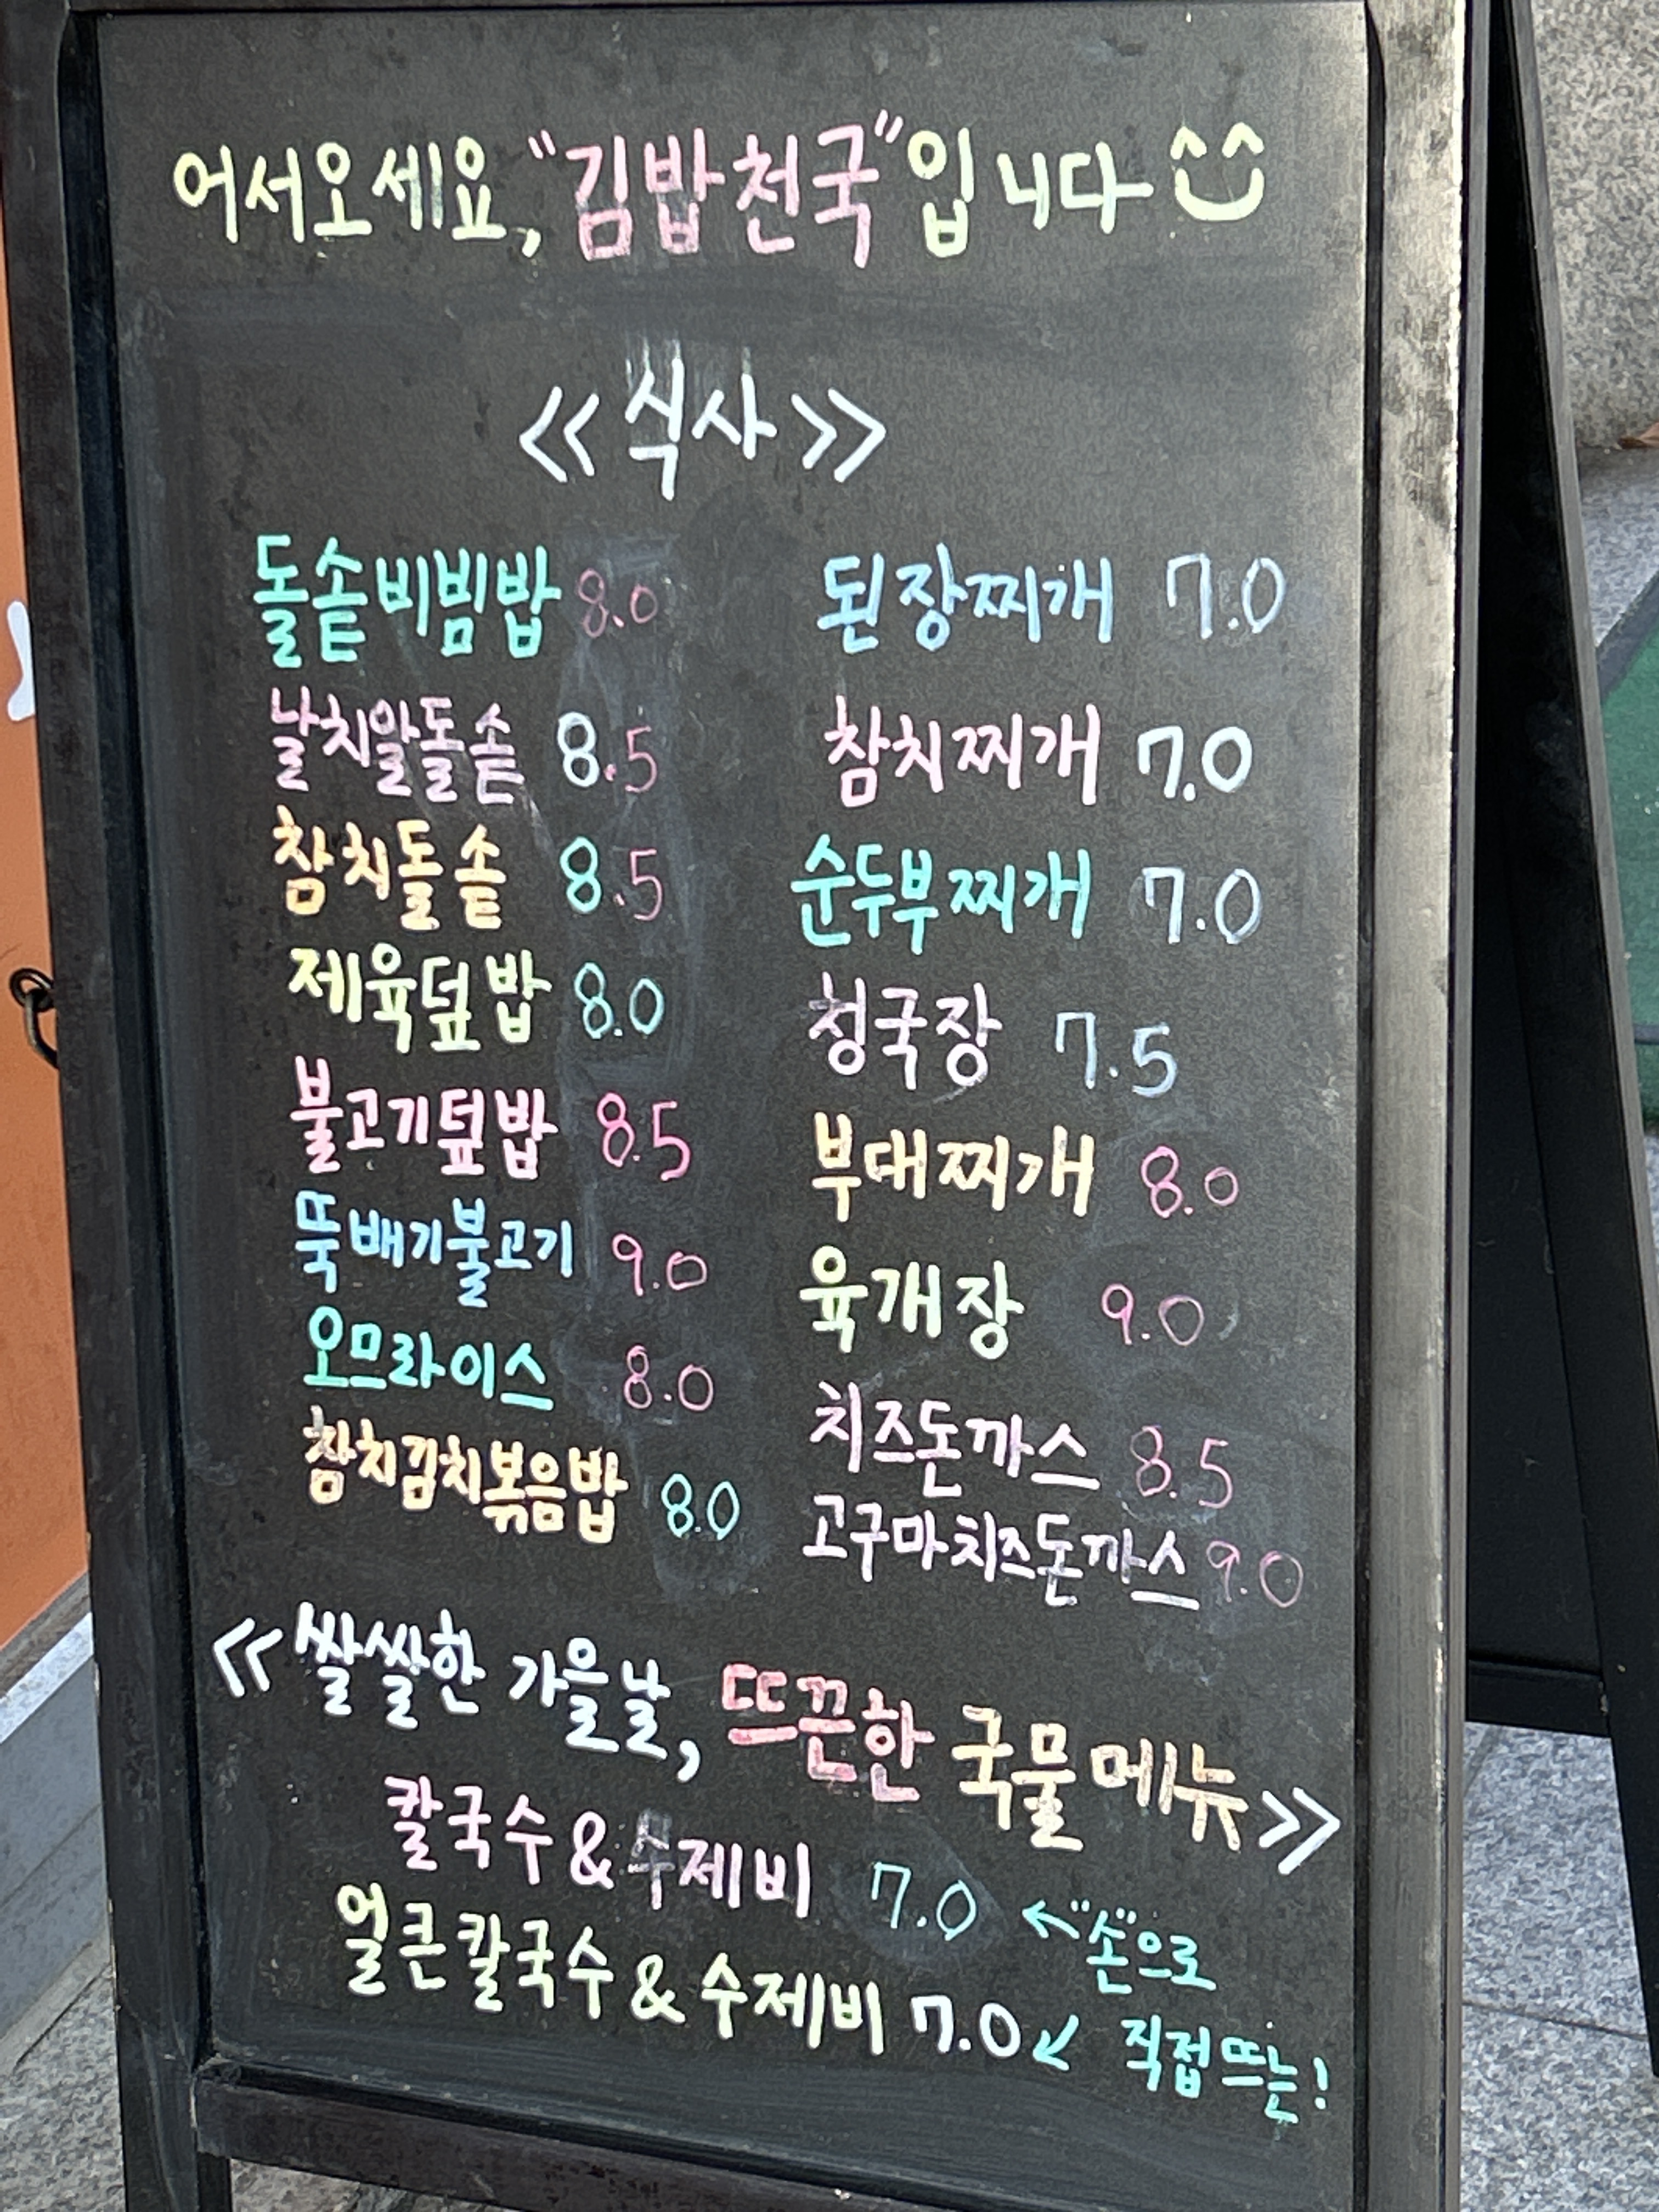 어서오세요, "김밥천국"입니다
<< 식사 >>
돌솥비빔밥 8.0
날치알돌솥 8.5
참치돌솥 8.5
제육덮밥 8.0
불고기덮밥 8.5
뚝배기불고기 9.0
오므라이스 8.0
참치김치볶음밥 8.0
된장찌개 7.0
참치찌개 7.0
순두부찌개 7.0
청국장 7.5
부대찌개 8.0
육개장 9.0
치즈돈까스 8.5
고구마치즈돈까스 9.0
<< 쌀쌀한 가을날, 뜨끈한 국물메뉴 >>
칼국수 & 수제비 7.0 ← "손"으로
얼큰칼국수 & 수제비 7.0 ↙ 직접뜨는!